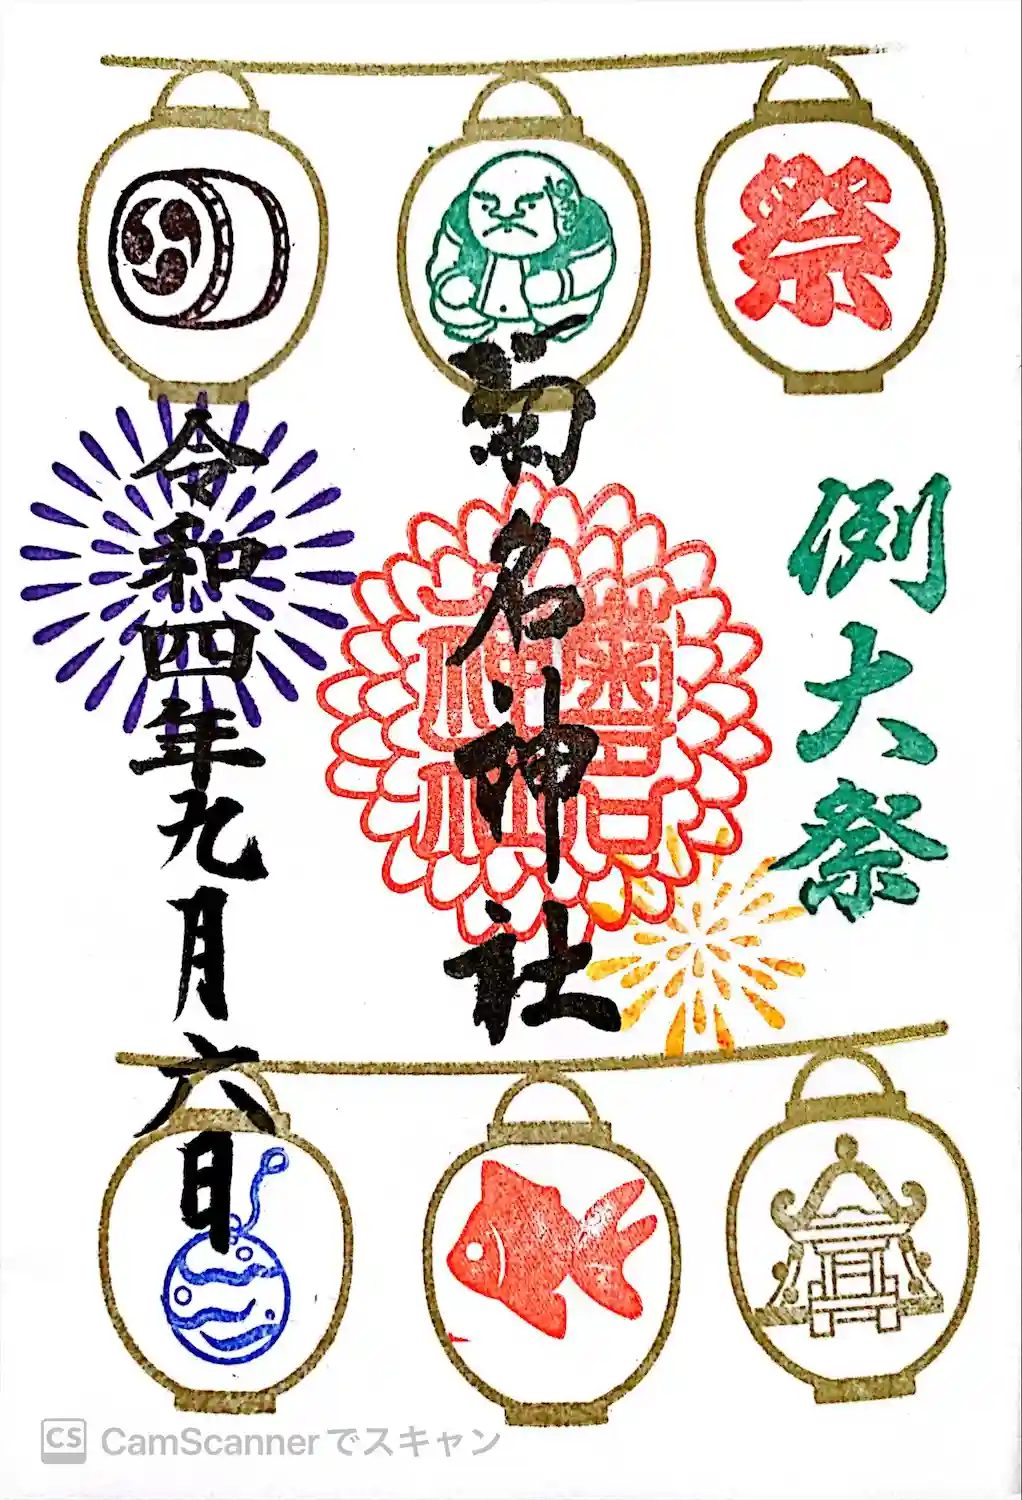 祭
例大祭
菊名神社
菊名
神社
令和四年九月六日
CS CamScannerでスキャン